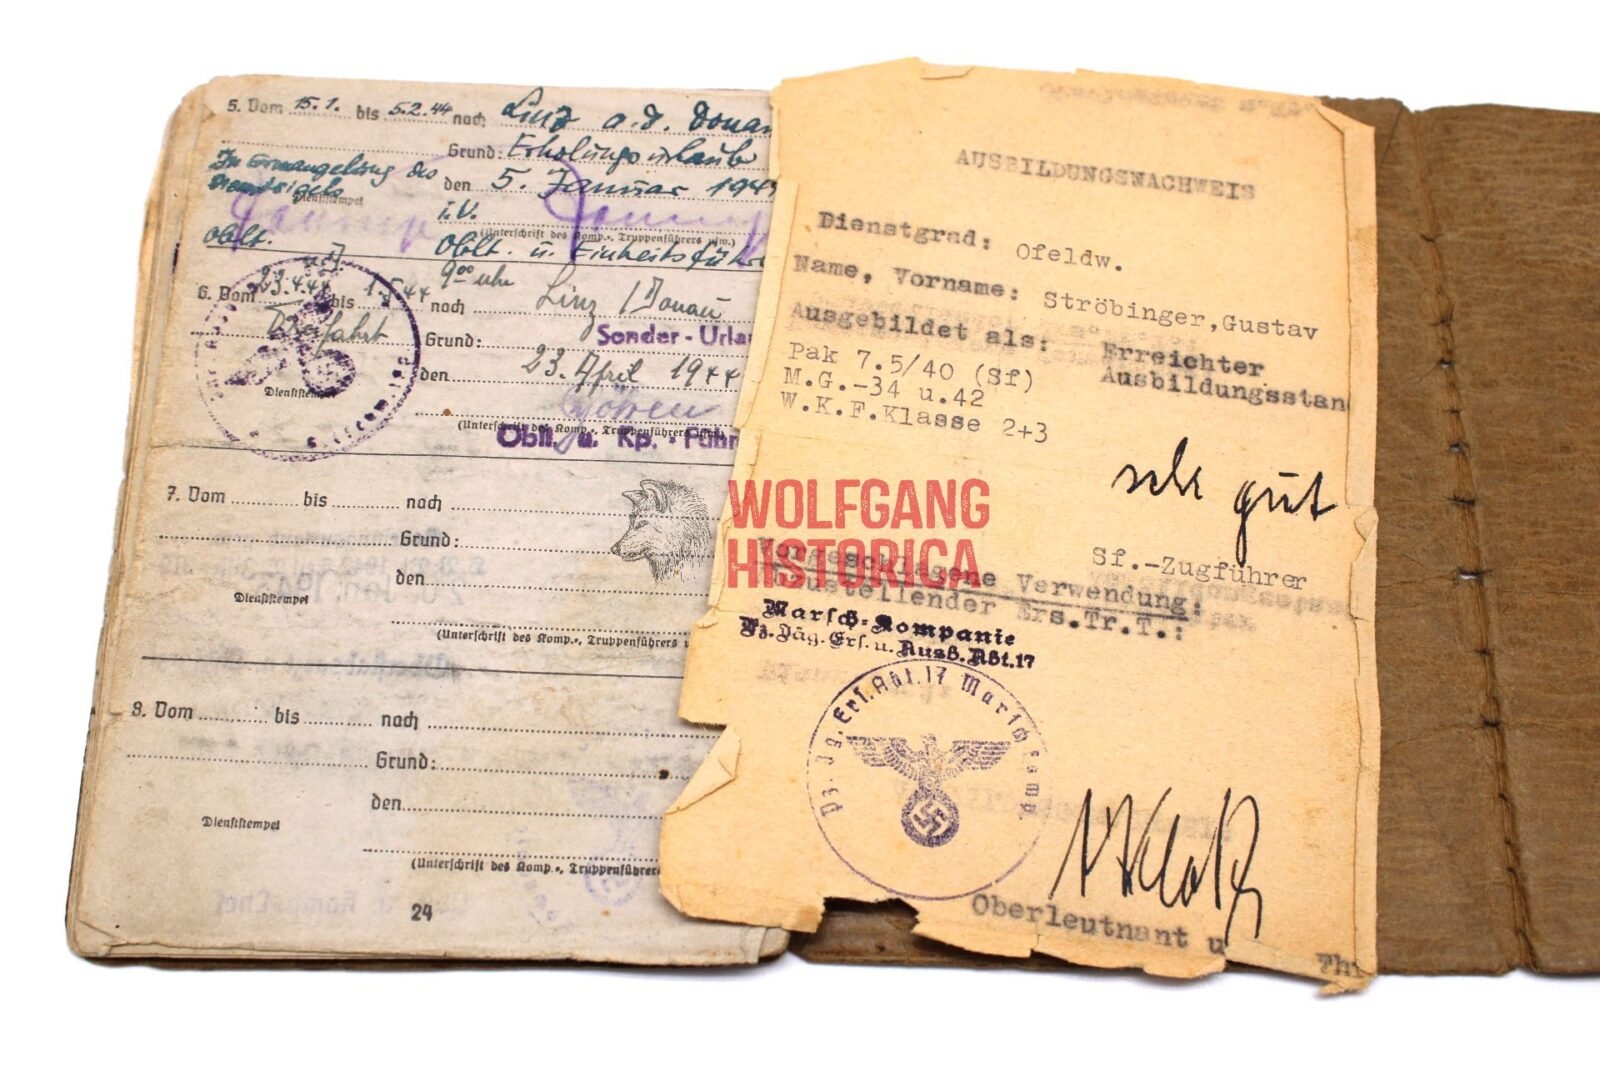 5. Vom 15.1. bis 5.2.44 nach Linz a.d. Donau
Grund: Erholungsurlaub
In Ermangelung des
Dienstsiegels
Dienststempel
den 5. Januar 1944
i.V.
(Unterschrift des Komp., Truppenführers usw.)
Oblt.
Oblt. u. Einheitsführe
6. Vom 23.4.44 bis 1.5.44 9⁰⁰ uhr nach Linz / Donau
Grund: Sonder-Urla
den 23. April 1944
Dienststempel
(Unterschrift des Komp., Truppenführers
Oblt. u. Kp.-Führ
7. Vom bis nach
Grund:
den
Dienststempel
(Unterschrift des Komp., Truppenführers u
8. Vom bis nach
Grund:
den
Dienststempel
(Unterschrift des Komp., Truppenführers
24
AUSBILDUNGSNACHWEIS
Dienstgrad: Ofeldw.
Name, Vorname: Ströbinger,Gustav
Ausgebildet als: Erreichter
Ausbildungsstan
Pak 7.5/40 (Sf)
M.G.-34 u.42
W.K.F.Klasse 2+3
sehr gut
Sf.-Zugführer
Vorgeschlagene Verwendung:
Zustellender Ers.Tr.T.:
Marsch-Kompanie
Pz.Jäg.Ers.u.Ausb.Abt.17
Pz.Jg.Ers.Abt.17 Marschkomp
Oberleutnant u
WOLFGANG
HISTORICA